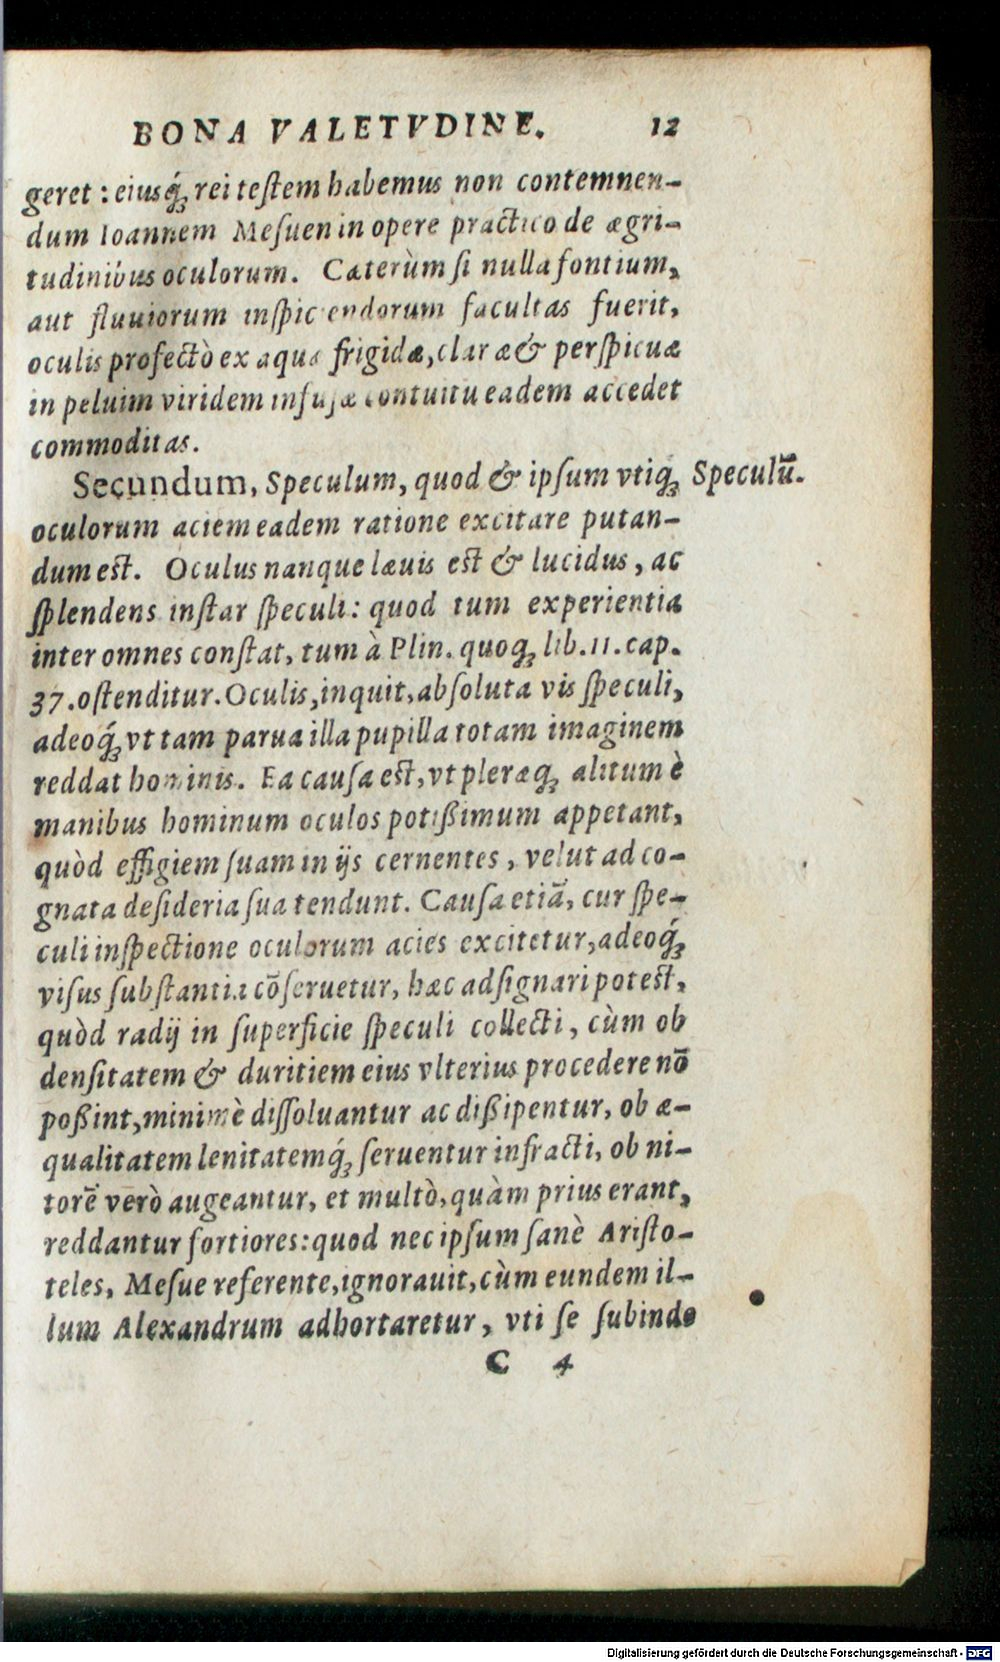 BONA VALETVDINE. 12
geret : eiusq́; rei testem habemus non contemnen-
dum Ioannem Mesuen in opere practico de ægri-
tudinibus oculorum. Cæterùm si nulla fontium,
aut fluuiorum inspiciendorum facultas fuerit,
oculis profectò ex aqua frigidæ, claræ & perspicuæ
in peluim viridem infusæ contuitu eadem accedet
commoditas.
Secundum, Speculum, quod & ipsum vtiq; Speculū.
oculorum aciem eadem ratione excitare putan-
dum est. Oculus nanque læuis est & lucidus, ac
splendens instar speculi: quod tum experientia
inter omnes constat, tum à Plin. quoq; lib. 11. cap.
37. ostenditur. Oculis, inquit, absoluta vis speculi,
adeoq́; vt tam parua illa pupilla totam imaginem
reddat hominis. Ea causa est, vt pleræq; alitum è
manibus hominum oculos potißimum appetant,
quòd effigiem suam in ijs cernentes, velut ad co-
gnata desideria sua tendunt. Causa etiā, cur spe-
culi inspectione oculorum acies excitetur, adeoq́;
visus substantia cōseruetur, hæc adsignari potest,
quòd radij in superficie speculi collecti, cùm ob
densitatem & duritiem eius vlterius procedere nō
poßint, minimè dissoluantur ac dißipentur, ob æ-
qualitatem lenitatemq́; seruentur infracti, ob ni-
torē verò augeantur, et multò, quàm prius erant,
reddantur fortiores: quod nec ipsum sanè Aristo-
teles, Mesue referente, ignorauit, cùm eundem il-
lum Alexandrum adhortaretur, vti se subinde
C 4
Digitalisierung gefördert durch die Deutsche Forschungsgemeinschaft - DFG